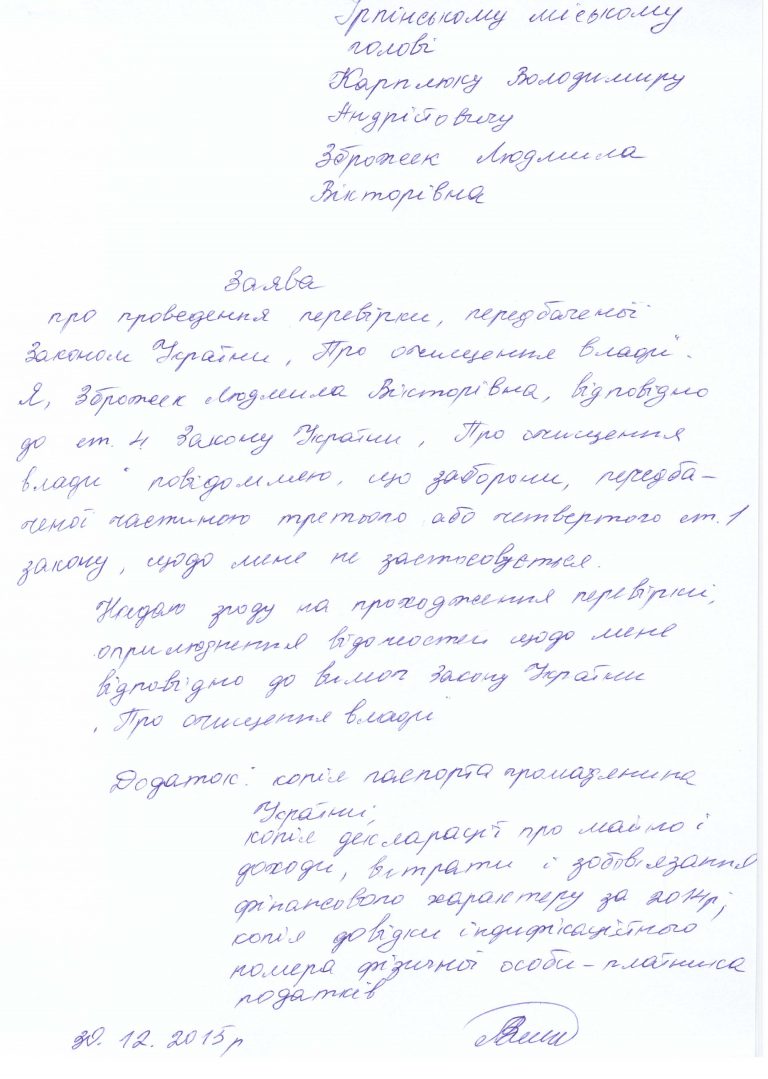 Ірпінському міському
голові
Карплюку Володимиру
Андрійовичу
Зброжек Людмила
Вікторівна
Заява
про проведення перевірки, передбаченої
Законом України „Про очищення влади".
Я, Зброжек Людмила Вікторівна, відповідно
до ст. 4 Закону України „Про очищення
влади" повідомляю, що заборони, передба-
ченої частиною третього або четвертого ст. 1
закону, щодо мене не застосовується.
Надаю згоду на проходження перевірки,
оприлюднення відомостей щодо мене
відповідно до вимог Закону України
„Про очищення влади"
Додаток: копія паспорта громадянина
України;
копія декларації про майно і
доходи, витрати і зобов'язання
фінансового характеру за 2014р;
копія довідки індифікаційного
номера фізичної особи-платника
податків
30.12.2015р